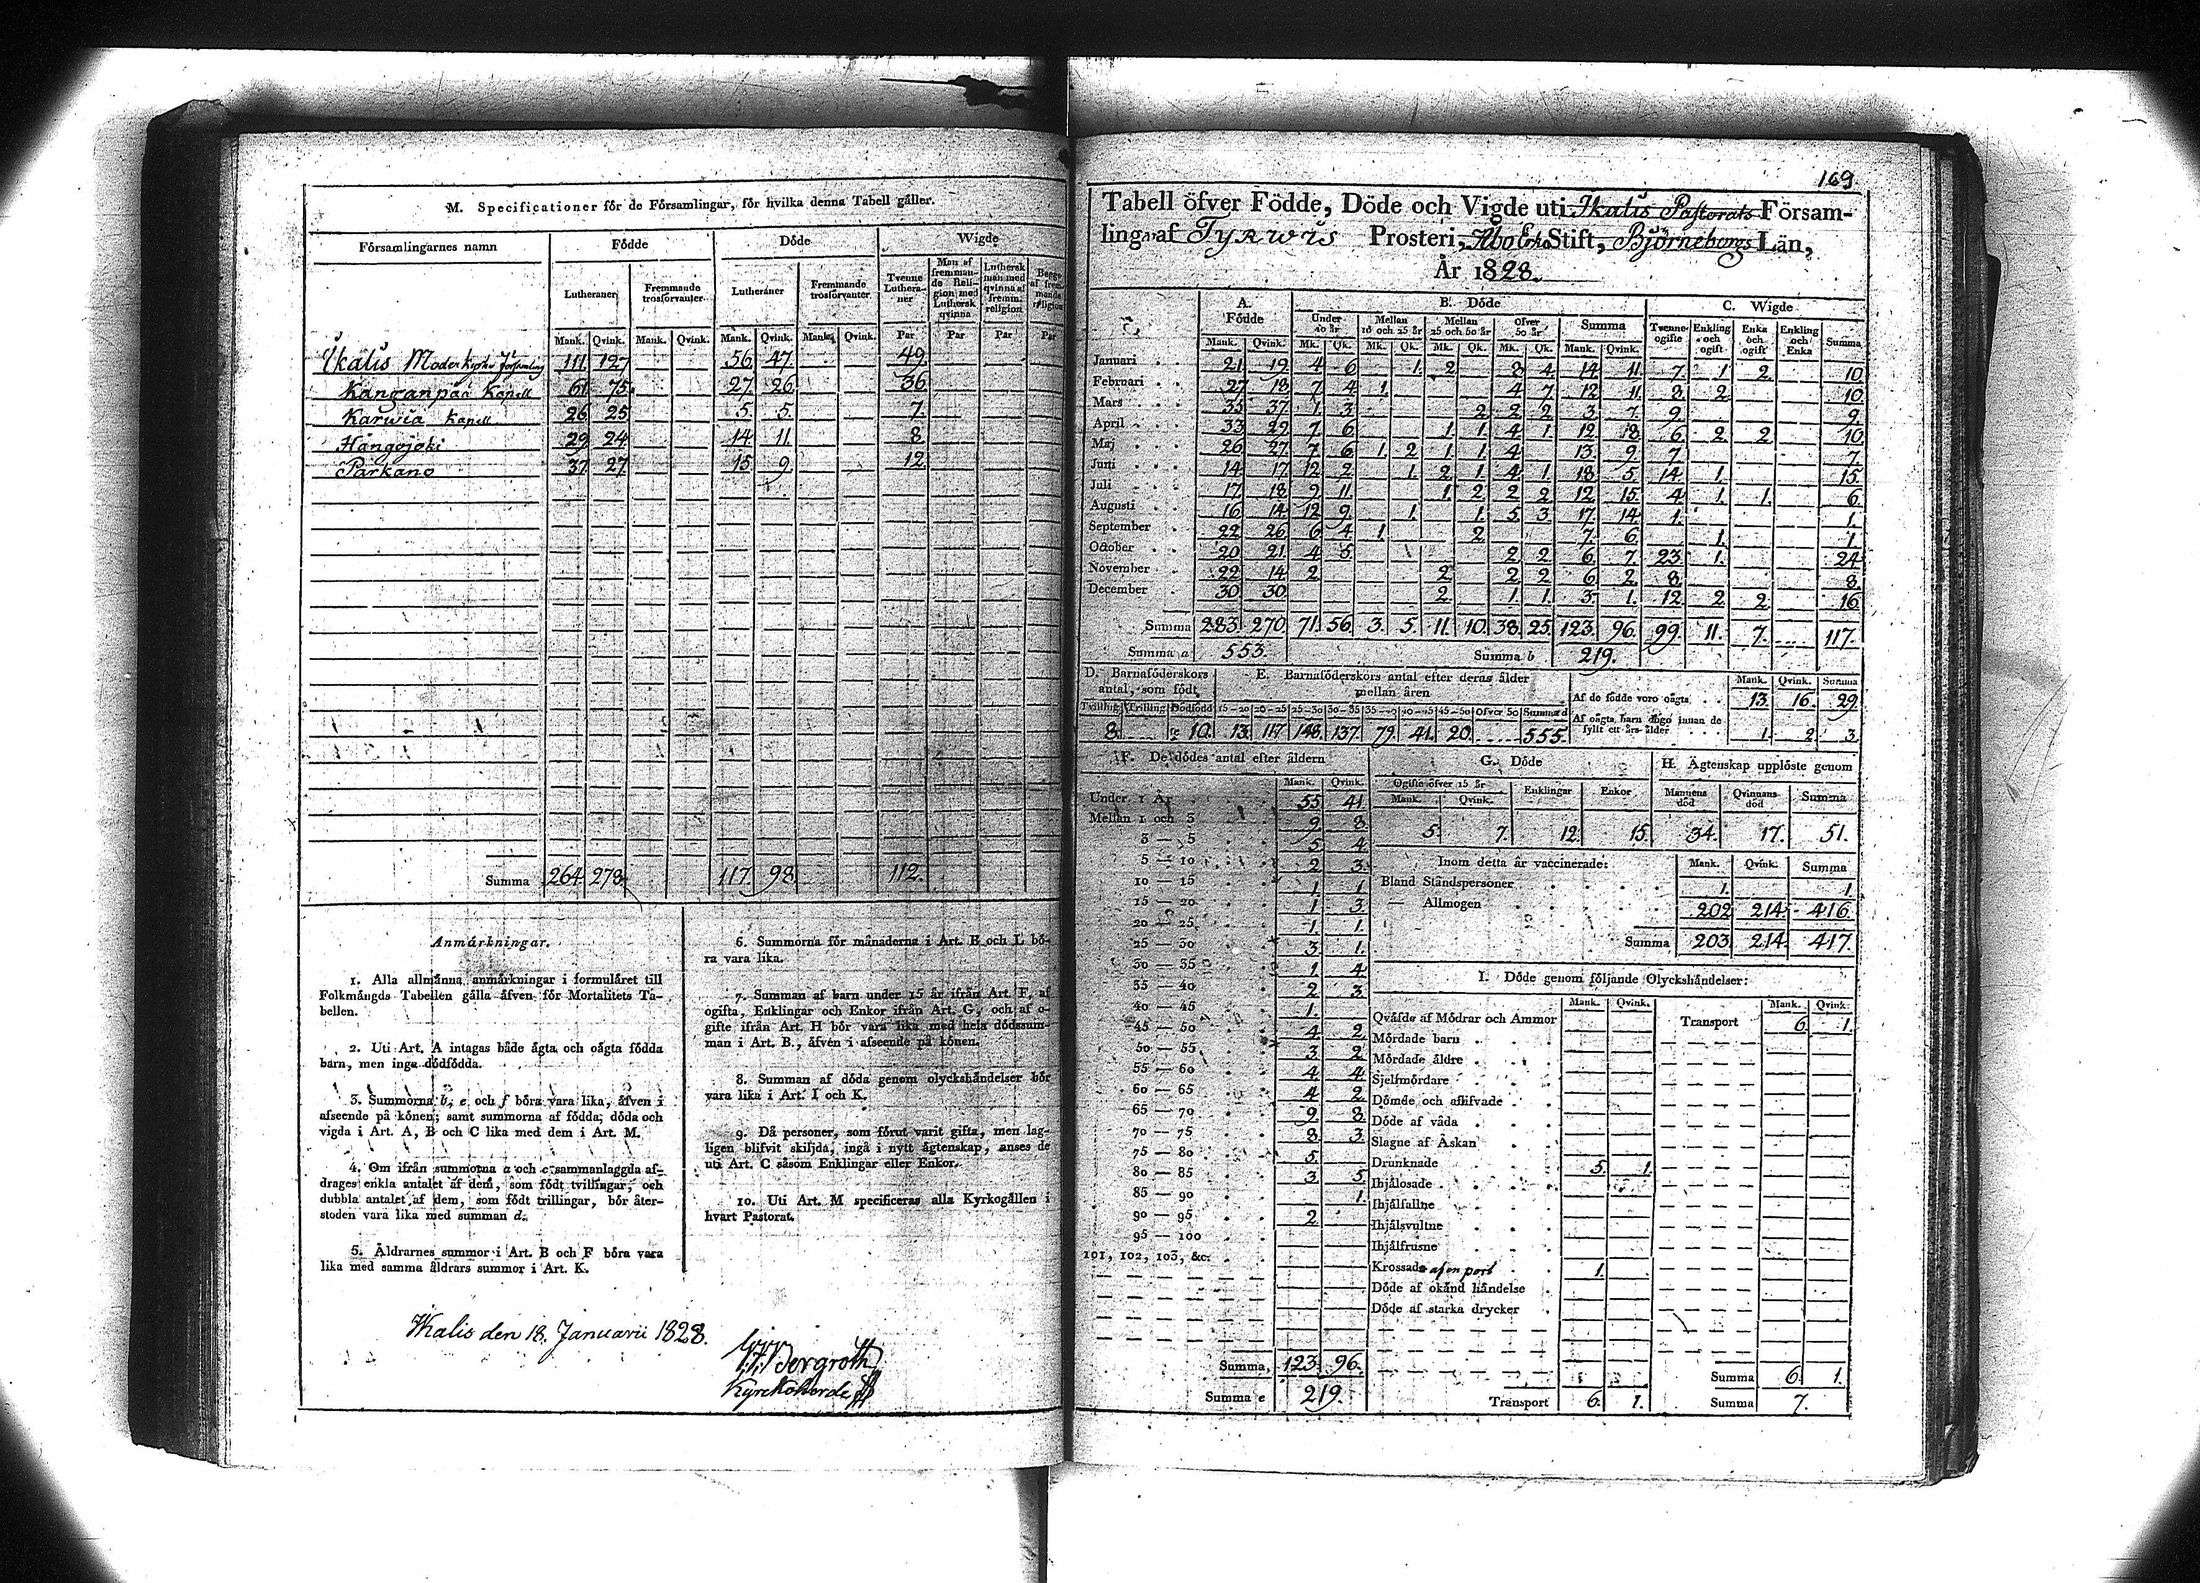 M. Specificationer för de Församlingar, för hvilka denna Tabell gäller.
Församlingarnes namn Födde Döde Wigde
Lutheraner Fremmande trosförvanter Lutheraner Fremmande trosförvanter Tvenne Lutheraner Man af fremmande Religion med Luthersk qvinna Luthersk man med qvinna af fremm. religion Begge af fremmande religion
Mank. Qvink. Mank. Qvink. Mank. Qvink. Mank. Qvink. Par Par Par Par
Ikalis Moderkyrko Församling 111 127 56 47 49
Kanganpää Kapell 61 75 27 26 36
Karwia Kapell 26 25 5 5 7
Hångojoki 29 24 14 11 8
Parkano 37 27 15 9 12
Summa 264 278 117 98 112
Anmärkningar.
1. Alla allmänna anmärkningar i formuläret till
Folkmängds Tabellen gälla äfven för Mortalitets Ta-
bellen.
2. Uti Art. A intagas både ägta och oägta födda
barn, men inga dödfödda.
3. Summorna b, e och f böra vara lika, äfven i
afseende på könen; samt summorna af födda, döda och
vigda i Art. A, B och C lika med dem i Art. M.
4. Om ifrån summorna a och c sammanlaggda af-
drages enkla antalet af dem, som födt tvillingar, och
dubbla antalet af dem, som födt trillingar, bör åter-
stoden vara lika med summan d.
5. Åldrarnes summor i Art. B och F böra vara
lika med samma åldrars summor i Art. K.
6. Summorna för månaderna i Art. B och L bö-
ra vara lika.
7. Summan af barn under 15 år ifrån Art. F, af
ogifta, Enklingar och Enkor ifrån Art. G, och af o-
gifte ifrån Art. H bör vara lika med hela dödssum-
man i Art. B., äfven i afseende på könen.
8. Summan af döda genom olyckshändelser bör
vara lika i Art. I och K.
9. Då personer, som förut varit gifta, men lag-
ligen blifvit skiljda, ingå i nytt ägtenskap, anses de
uti Art. C såsom Enklingar eller Enkor.
10. Uti Art. M specificeras alla Kyrkogällen i
hvart Pastorat.
Ikalis den 18. Januarii 1828.
Bergroth
Kyrckoherde
169
Tabell öfver Födde, Döde och Vigde uti Ikalis Pastorats Försam-
ling af Tyrwis Prosteri, Åbo Erke Stift, Björneborgs Län,
År 1828.
A. Födde B. Döde C. Wigde
Under 10 år Mellan 10 och 25 år Mellan 25 och 50 år Öfver 50 år Summa Tvenne ogifte Enkling och ogift Enka och ogift Enkling och Enka Summa
Mank. Qvink. Mk. Qk. Mk. Qk. Mk. Qk. Mk. Qk. Mank. Qvink.
Januari 21 19 4 6 1 2 8 4 14 11 7 1 2 10
Februari 27 18 7 4 1 4 7 12 11 8 2 10
Mars 35 37 1 3 2 2 2 3 7 9 9
April 33 29 7 6 1 1 4 1 12 18 6 2 2 10
Maj 26 27 7 6 1 2 1 1 4 13 9 7 7
Juni 14 17 12 2 1 2 1 4 1 18 5 14 1 15
Juli 17 18 9 11 1 2 2 2 12 15 4 1 1 6
Augusti 16 14 12 9 1 1 5 3 17 14 1 1
September 22 26 6 4 1 2 7 6 1 1
October 20 21 4 5 2 2 6 7 23 1 24
November 22 14 2 2 2 2 6 2 8 8
December 30 30 2 1 1 3 1 12 2 2 16
Summa 283 270 71 56 3 5 11 10 38 25 123 96 99 11 7 117
Summa a 553. Summa b 219.
D. Barnaföderskors antal, som födt E. Barnaföderskors antal efter deras ålder mellan åren
Tvilling Trilling Dödfödd 15-20 20-25 25-30 30-35 35-40 40-45 45-50 Öfver 50 Summa d
8 10 13 117 148 137 79 41 20 555.
Mank. Qvink. Summa
Af de födde voro oägta 13 16 29
Af oägta barn dogo innan de fyllt ett års ålder 1 2 3
F. De dödes antal efter åldern
Mank. Qvink.
Under 1 År 55 41
Mellan 1 och 3 9 8
3 — 5 5 4
5 — 10 2 3
10 — 15 1 1
15 — 20 1 3
20 — 25 1 1
25 — 30 3 1
30 — 35 1 4
35 — 40 2 3
40 — 45 1
45 — 50 4 2
50 — 55 3 2
55 — 60 4 4
60 — 65 4 2
65 — 70 9 8
70 — 75 8 3
75 — 80 5
80 — 85 3 5
85 — 90 1
90 — 95 2
95 — 100
101, 102, 103, &c.
Summa 123 96
Summa e 219.
G. Döde H. Ägtenskap upplöste genom
Ogifte öfver 15 år Enklingar Enkor Mannens död Qvinnans död Summa
Mank. Qvink.
5 7 12 15 34 17 51.
Inom detta år vaccinerade: Mank. Qvink. Summa
Bland Ståndspersoner 1 1
— Allmogen 202 214 416
Summa 203 214 417.
I. Döde genom följande Olyckshändelser:
Mank. Qvink. Mank. Qvink.
Qväfde af Mödrar och Ammor Transport 6 1
Mördade barn
Mördade äldre
Sjelfmördare
Dömde och aflifvade
Döde af våda
Slagne af Åskan
Drunknade 5 1
Ihjälosade
Ihjälfallne
Ihjälsvultne
Ihjälfrusne
Krossade af en port 1
Döde af okänd händelse
Döde af starka drycker
Summa 6 1
Transport 6 1 Summa 7.